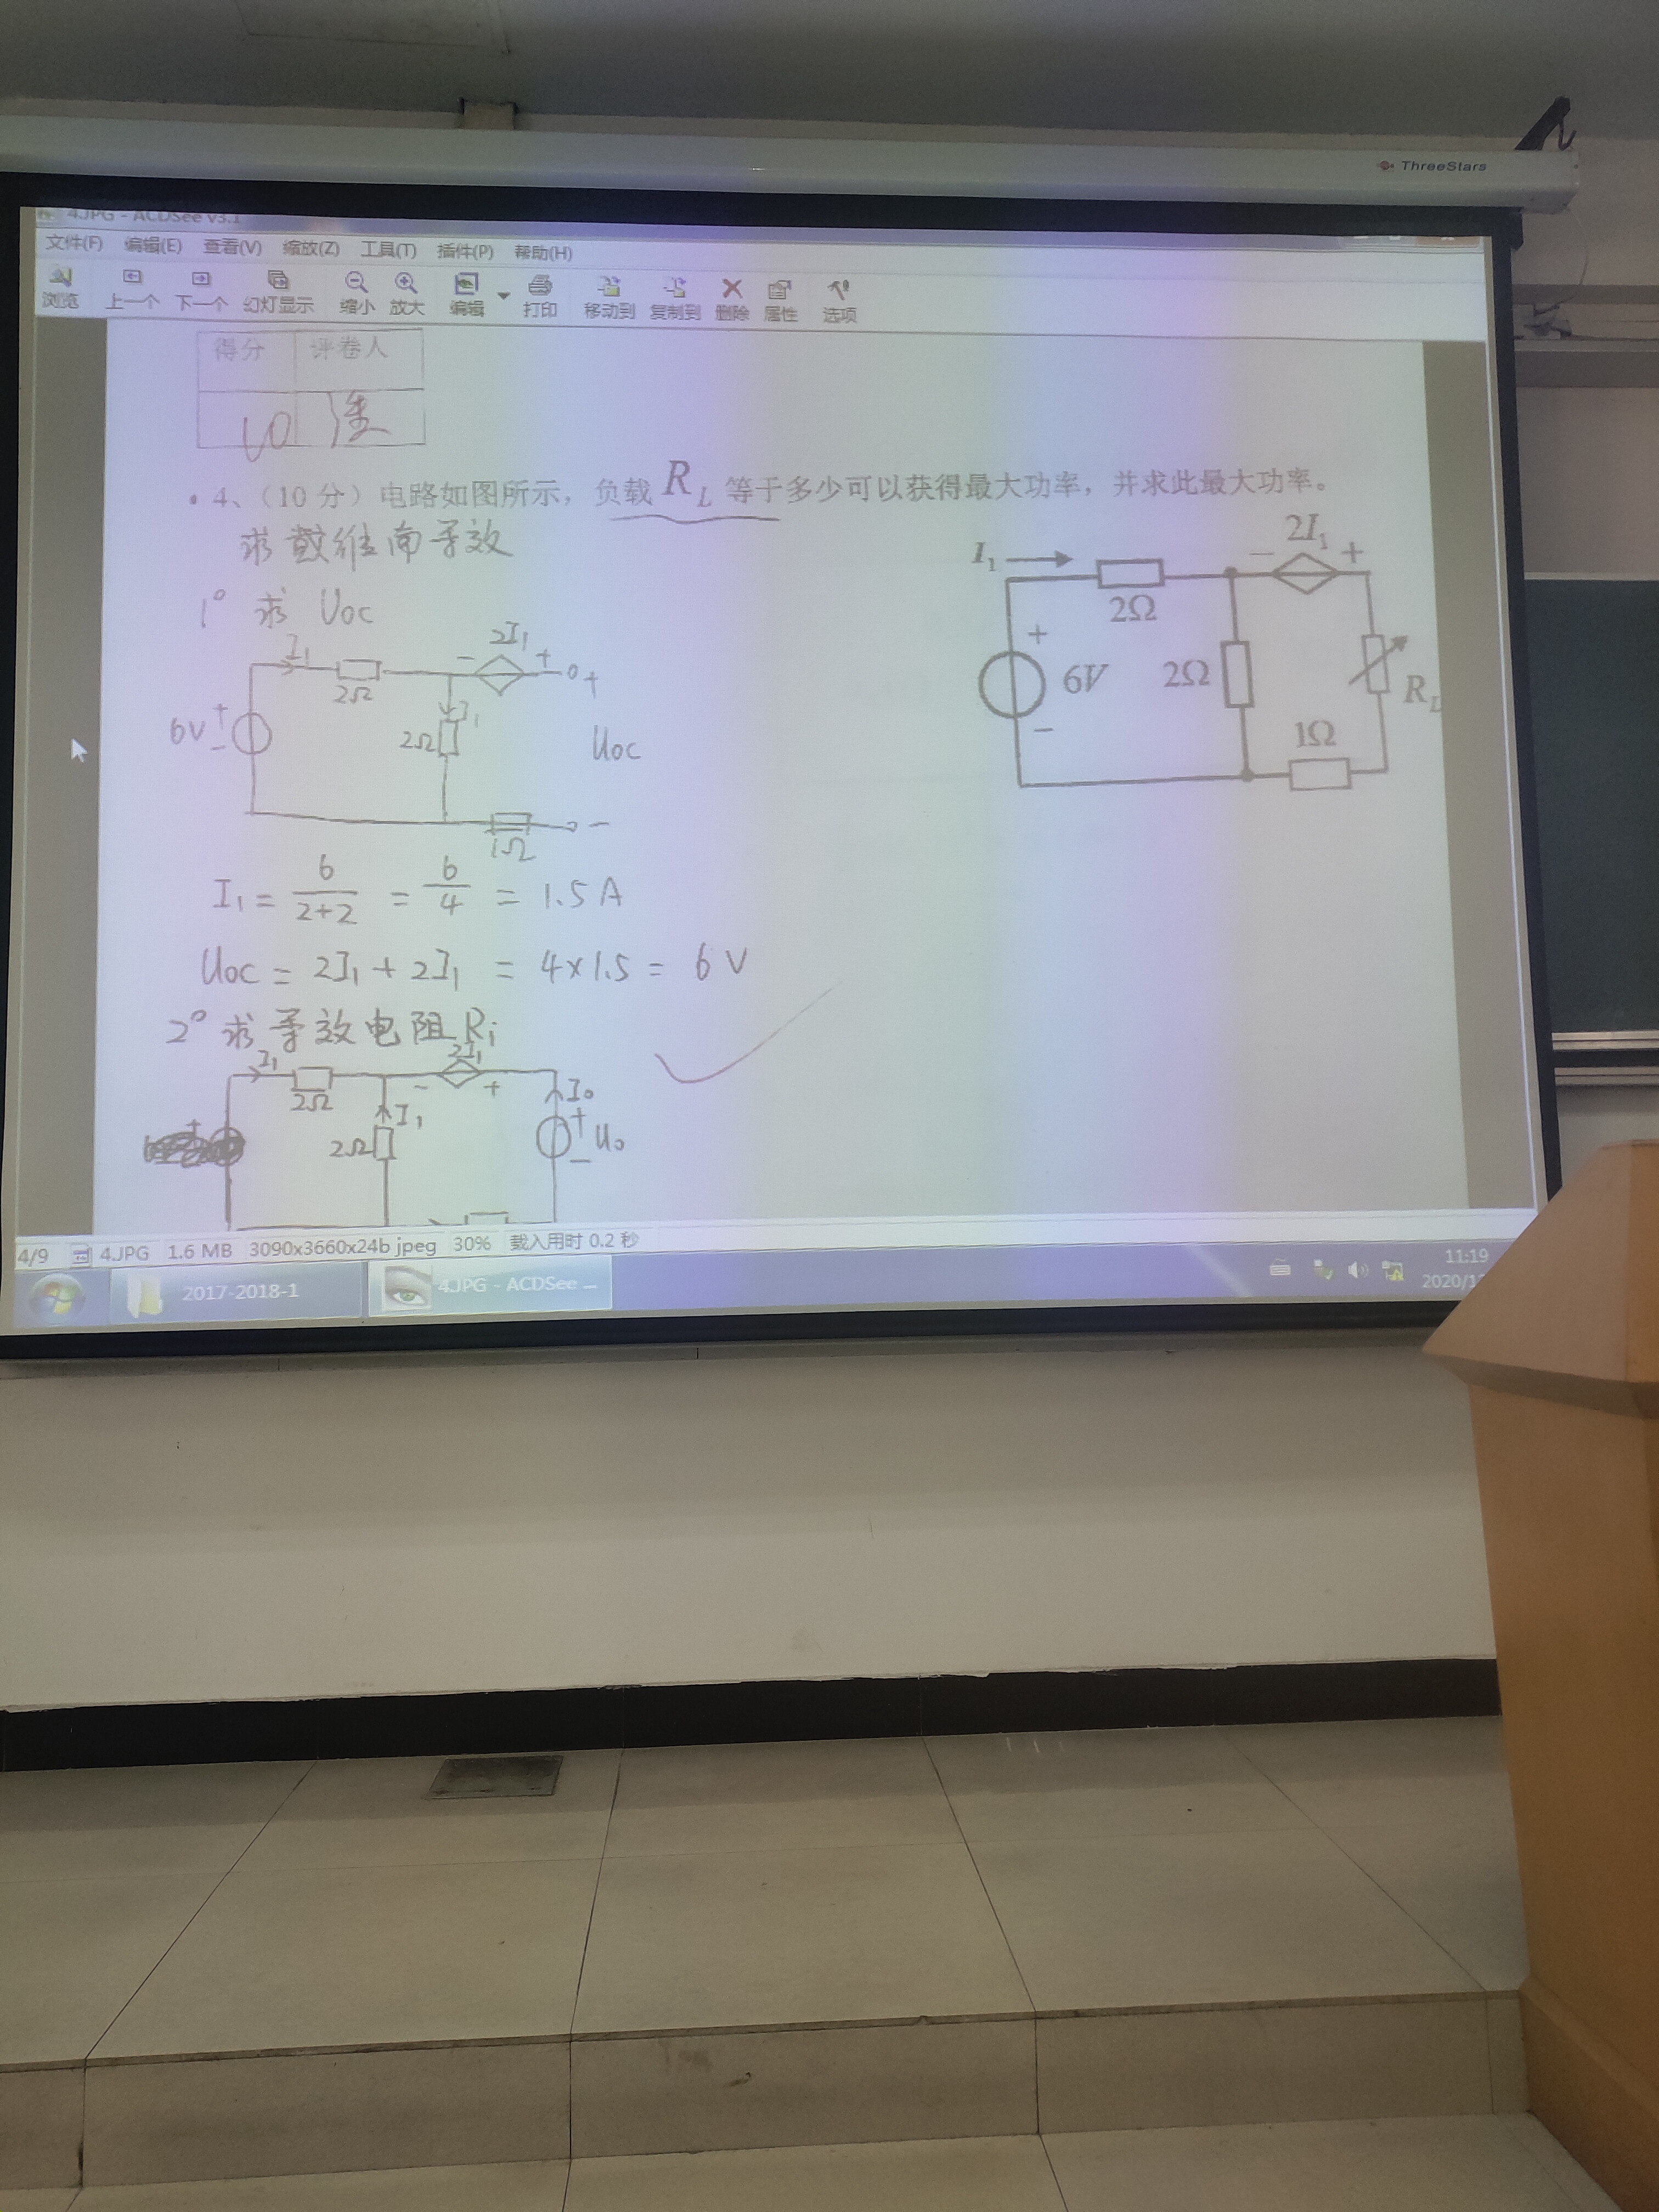 ThreeStars
4.JPG - ACDSee v3.1
文件(F) 编辑(E) 查看(V) 缩放(Z) 工具(T) 插件(P) 帮助(H)
浏览 上一个 下一个 幻灯显示 缩小 放大 编辑 打印 移动到 复制到 删除 属性 选项
得分 评卷人
10
4、（10 分）电路如图所示，负载 R_L 等于多少可以获得最大功率，并求此最大功率。
求戴维南等效
1° 求 Uoc
I₁ 2Ω - 2I₁ + +
6V + - 2Ω I₁ Uoc
1Ω -
I₁ 2Ω - 2I₁ +
+ 6V - 2Ω R_L
1Ω
I₁ = 6/(2+2) = 6/4 = 1.5 A
Uoc = 2I₁ + 2I₁ = 4×1.5 = 6 V
2° 求等效电阻Ri
I₁ 2Ω - 2I₁ + I₀
+ 2Ω I₁ + U₀ -
4/9 4.JPG 1.6 MB 3090x3660x24b jpeg 30% 载入用时 0.2 秒
2017-2018-1 4.JPG - ACDSee ...
11:19
2020/1